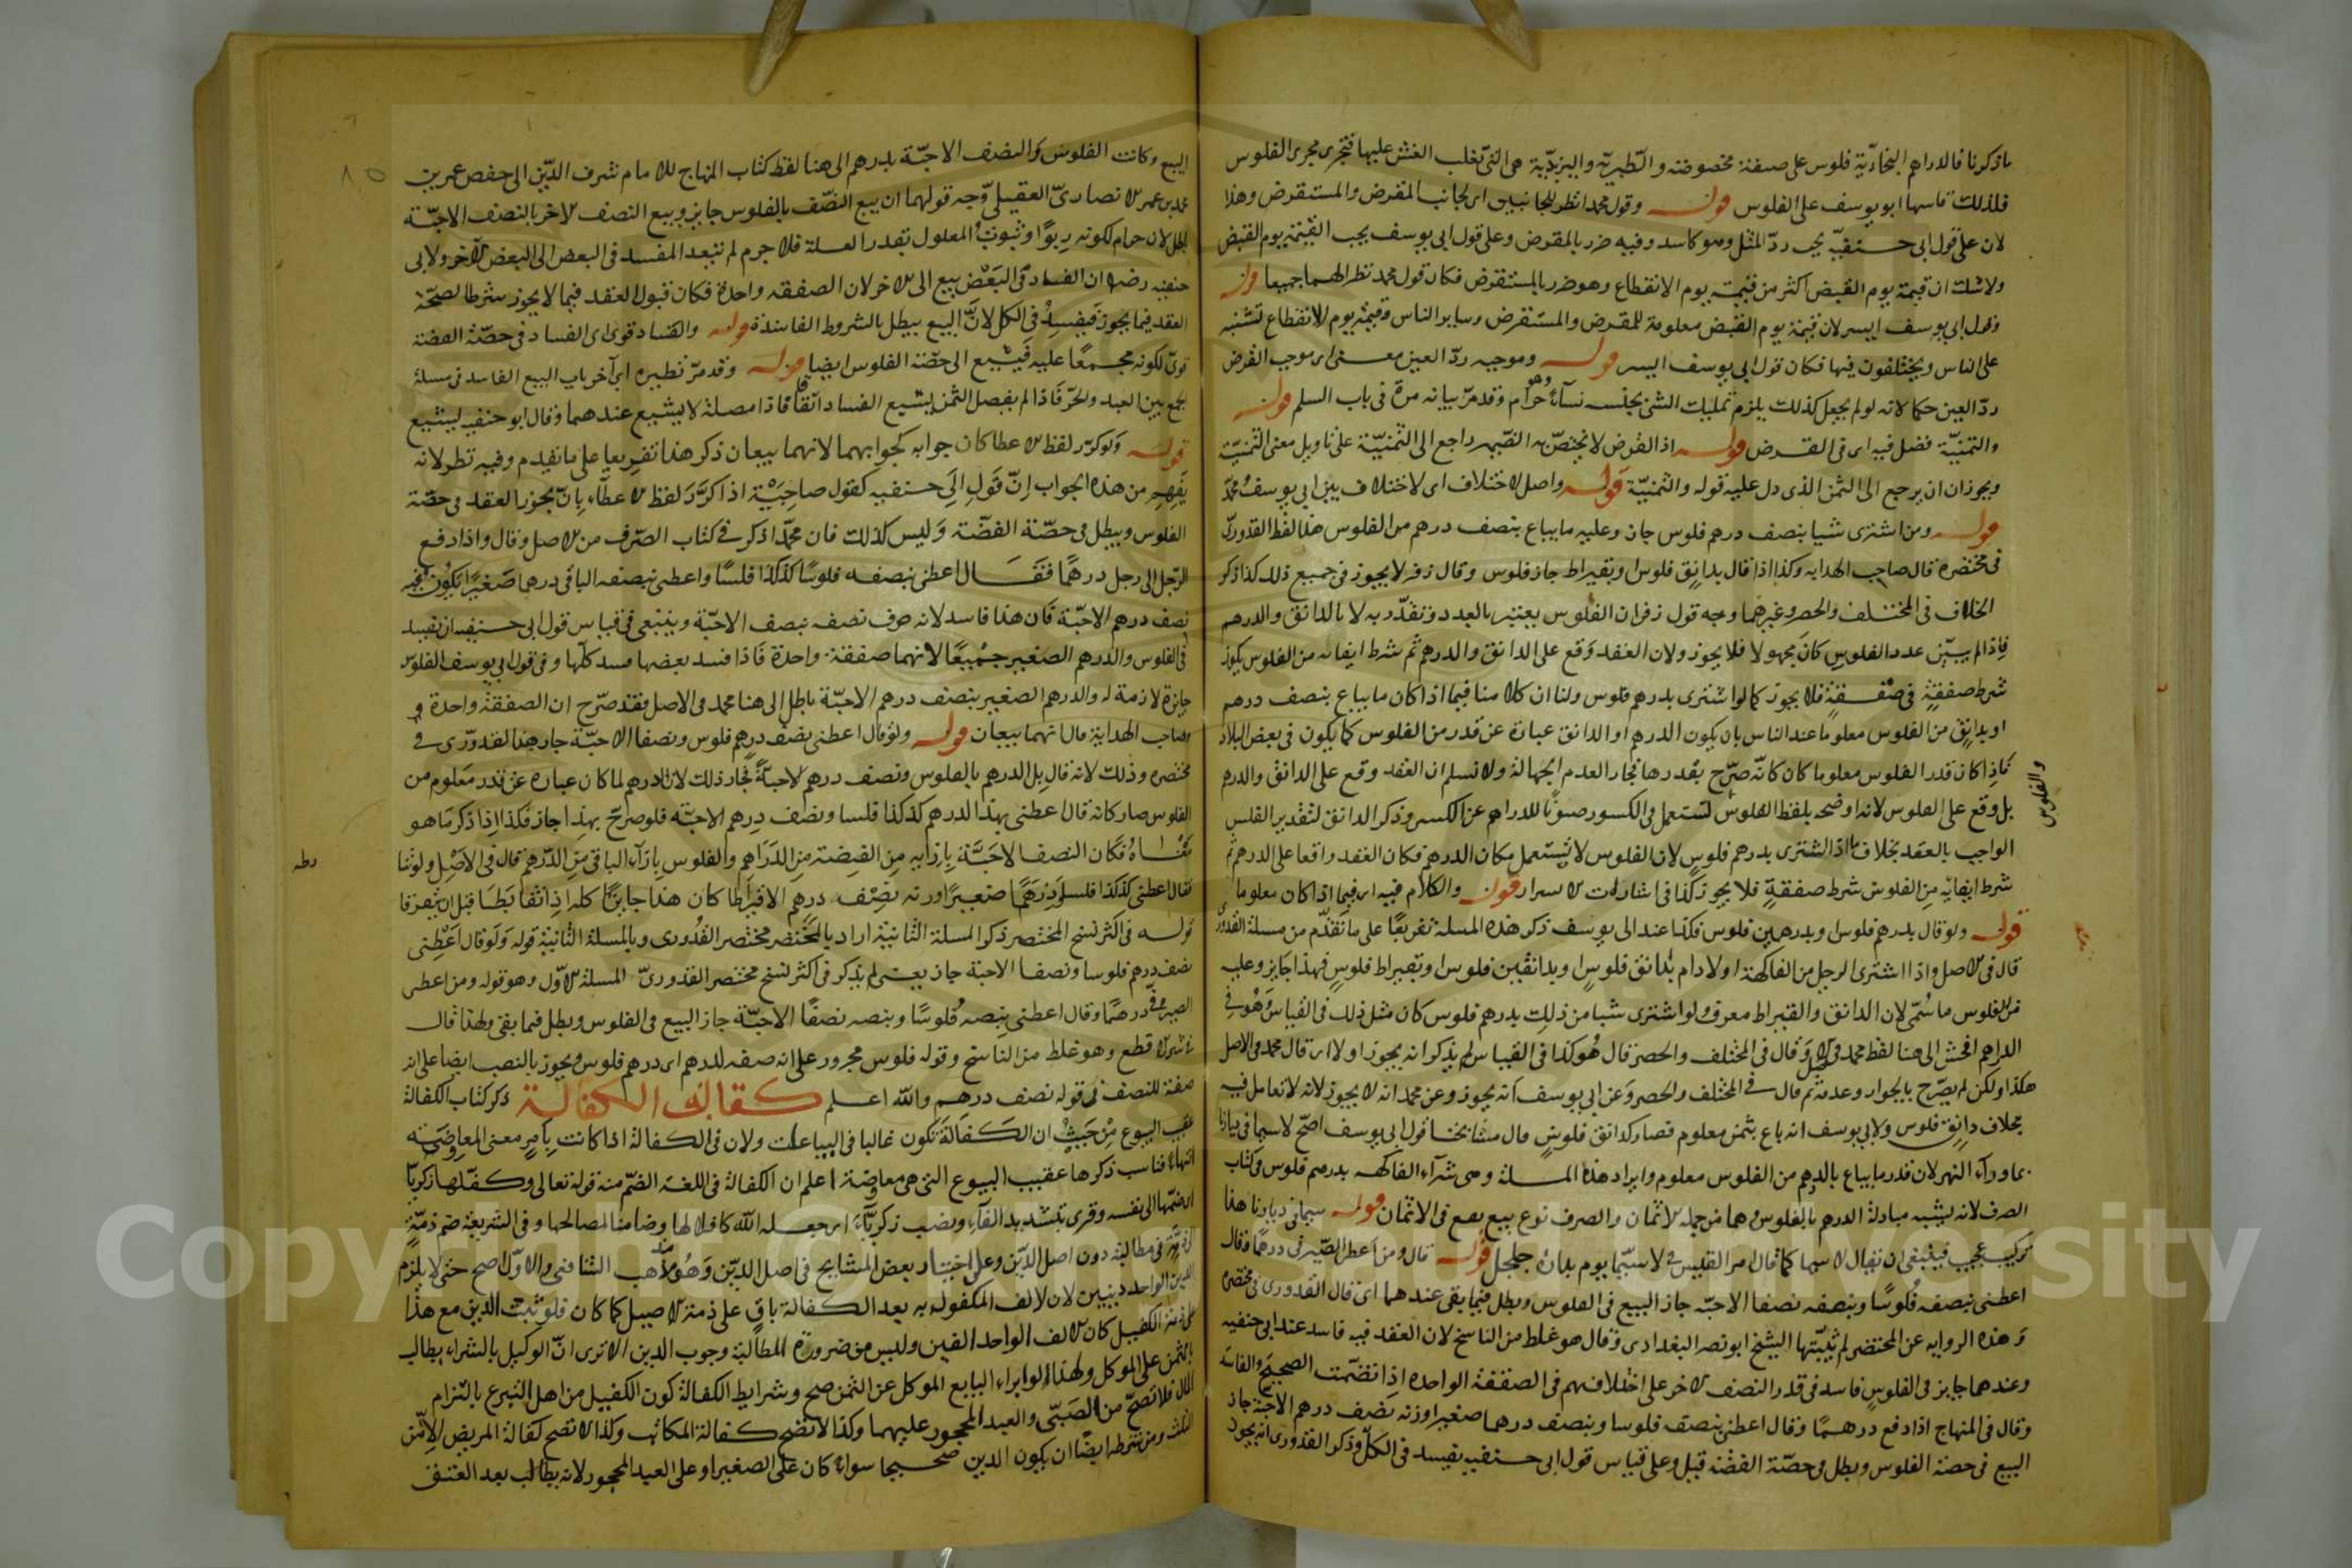 ما ذكرنا فالدراهم البخارية فلوس على صفة مخصوصة والطبرية واليزيدية هى التى تغلب الغش عليها فتجرى مجرى الفلوس
فلذلك قاسها ابو يوسف على الفلوس قوله وقول محمد انظر للجانبين اى لجانب المقرض والمستقرض وهذا
لان على قول ابى حنيفة يجب رد المثل وهو كاسد وفيه ضرر بالمقرض وعلى قول ابى يوسف يجب القيمة يوم القبض
ولا شك ان قيمة يوم القبض اكثر من قيمته يوم الانقطاع وهو ضرر بالمستقرض فكان قول محمد نظرا لهما جميعا قوله
وقول ابى يوسف ايسر لان قيمة يوم القبض معلومة للمقرض والمستقرض وساير الناس وقيمة يوم الانقطاع تشتبه
على الناس ويختلفون فيها فكان قول ابى يوسف ايسر قوله وموجبه رد العين معنى اى موجب القرض
رد العين حكما لانه لو لم يجعل كذلك يلزم تمليك الشئ بجنسه نساء وهو حرام وقد مر بيانه مرة فى باب السلم قوله
والثمنية فضل فيه اى فى القرض قوله اذ القرض لا يختص به الضمير راجع الى الثمنية على تاويل معنى الثمنية
ويجوز ان يرجع الى الثمن الذى دل عليه قوله والثمنية قوله واصل الاختلاف اى الاختلاف بين ابى يوسف ومحمد
قوله ومن اشترى شيا بنصف درهم فلوس جاز وعليه ما يباع بنصف درهم من الفلوس هذا لفظ القدورى
فى مختصره قال صاحب الهداية وكذا اذا قال بدانق فلوس او بقيراط جاز فلوس وقال زفر لا يجوز فى جميع ذلك كذا ذكر
الخلاف فى المختلف والحصر وغيرهما وجه قول زفر ان الفلوس يعتبر بالعدد وتقدر به لا بالدانق والدرهم
فاذا لم يبين عدد الفلوس كان مجهولا فلا يجوز ولان العقد وقع على الدانق والدرهم ثم شرط ايفائه من الفلوس يكون
شرط صفقة فى صفقة فلا يجوز كما لو اشترى بدرهم فلوس ولنا ان كلامنا فيما اذا كان ما يباع بنصف درهم
او بدانق من الفلوس معلوما عند الناس بان يكون الدرهم او الدانق عبارة عن قدر من الفلوس كما يكون فى بعض البلاد
فاذا كان قدر الفلوس معلوما كان كانه صرح بقدرها فجاز لعدم الجهالة ولا نسلم ان العقد وقع على الدانق والدرهم
والفلوس
بل وقع على الفلوس لانه اوضحه بلفظ الفلوس تستعمل فى الكسور صونا للدراهم عن الكسر وذكر الدانق لتقدير الفلس
الواجب بالعقد بخلاف ما اذا اشترى بدرهم فلوس لان الفلوس لا يستعمل مكان الدرهم فكان العقد واقعا على الدرهم ثم
شرط ايفائه من الفلوس شرط صفقة فلا يجوز كذا فى اشارات الاسرار قوله والكلام فيه اى فيما اذا كان معلوما
قوله ولو قال بدرهم فلوس وبدرهمين فلوس فكذا عند ابى يوسف ذكر هذه المسلة تفريعا على ما تقدم من مسلة القدورى
قال فى الاصل واذا اشترى الرجل من الفاكهة اولا دام بدانق فلوس او بدانقين فلوس او بقيراط فلوس فهذا جايز وعليه
من الفلوس ما سمى لان الدانق والقيراط معروف ولو اشترى شيا من ذلك بدرهم فلوس كان مثل ذلك فى القياس وهو فى
الدراهم افحش الى هنا لفظ محمد فى الاصل وقال فى المختلف والحصر قال هو كذا فى القياس لم يذكر انه يجوز او لا اى قال محمد فى الاصل
هكذا ولكن لم يصرح بالجواز وعدمه ثم قال فى المختلف والحصر وعن ابى يوسف انه يجوز وعن محمد انه لا يجوز لانه لا تعامل فيه
بخلاف دانق فلوس ولابى يوسف انه باع بثمن معلوم فصار كدانق فلوس قال مشايخنا قول ابى يوسف اصح لا سيما فى ديارنا
بما وراء النهر لان قدر ما يباع بالدرهم من الفلوس معلوم وايراد هذه المسلة وهى شراء الفاكهه بدرهم فلوس فى كتاب
الصرف لانه يشبه مبادلة الدرهم بالفلوس وهما من جملة الاثمان والصرف نوع بيع يقع فى الاثمان قوله سيما فى ديارنا هذا
تركيب عجيب فينبغى ان يقال لا سيما كما قال امرؤ القيس فى لا سيما يوم بدارة جلجل قوله قال ومن اعطى الصيرفى درهما وقال
اعطنى بنصفه فلوسا وبنصفه نصفا الا حبة جاز البيع فى الفلوس وبطل فيما بقى عندهما اى قال القدورى فى مختصره
وهذه الرواية عن المختصر لم يثبتها الشيخ ابو نصر البغدادى وقال هو غلط من الناسخ لان العقد فيه فاسد عند ابى حنيفه
وعندهما جايز فى الفلوس فاسد فى قدر النصف الاخر على اختلافهم فى الصفقة الواحدة اذا تضمنت الصحيح والفاسد
وقال فى المنهاج اذا دفع درهما وقال اعطنى بنصف فلوسا وبنصف درهما صغيرا وزنه نصف درهم الا حبة جاز
البيع فى حصة الفلوس وبطل فى حصة الفضة قيل وعلى قياس قول ابى حنيفه يفسد فى الكل وذكر القدورى انه يجوز
البيع وكانت الفلوس والنصف الا حبة بدرهم الى هنا لفظ كتاب المنهاج للامام شرف الدين ابى حفص عمر بن
محمد بن عمر الانصارى العقيلى وجه قولهما ان بيع النصف بالفلوس جايز وبيع النصف الاخر بالنصف الا حبة
باطل لان حرام لكونه ربوا وثبوت المعلول بقدر العلة فلا جرم لم يتعد المفسد فى البعض الى البعض الآخر ولابى
حنيفه رضه ان الفساد فى البعض يبيع الى الاخر لان الصفقه واحدة فكان قبول العقد فيما لا يجوز شرطا لصحة
العقد فيما يجوز فيفسد فى الكل لان البيع يبطل بالشروط الفاسدة قوله والفساد قوى اى الفساد فى حصة الفضة
قوى لكونه مجمعا عليه فيشيع الى حصة الفلوس ايضا قوله وقد مر نظيره اى آخر باب البيع الفاسد فى مسلة
بجمع بين العبد والحر فاذا لم يفصل الثمن يشيع الفساد اتفاقا فاذا فصله لا يشيع عندهما وقال ابو حنيفه يشيع
قوله ولو كرر لفظ الاعطا كان جوابه كجوابهما لانهما بيعان ذكر هذا تفريعا على ما تقدم وفيه نظر لانه
يفهم من هذه الجواب ان قول ابى حنيفه كقول صاحبيه اذا كرر لفظ الاعطاء بان يجوز العقد فى حصة
الفلوس ويبطل فى حصة الفضة وليس كذلك فان محمدا ذكر فى كتاب الصرف من الاصل وقال واذا دفع
الرجل الى رجل درهما فقال اعطنى بنصفه فلوسا كذا كذا فلسا واعطنى بنصفه الباقى درهما صغيرا يكون فيه
نصف درهم الا حبة فان هذا فاسد لانه صرف نصف بنصف الا حبة وينبغى فى قياس قول ابى حنيفه ان يفسد
فى الفلوس والدرهم الصغير جميعا لانهما صفقة واحدة فاذا فسد بعضها فسد كلها وفى قول ابى يوسف الفلوس
جايزة لازمة له والدرهم الصغير بنصف درهم الا حبة باطل الى هنا محمد فى الاصل فقد صرح ان الصفقة واحدة و
صاحب الهداية قال انهما بيعان قوله ولو قال اعطنى نصف درهم فلوس ونصفا الا حبة جاز هذا لفظ القدورى فى
مختصره وذلك لانه قابل الدرهم بالفلوس ونصف درهم الا حبة فجاز ذلك لان الدرهم لما كان عبارة عن قدر معلوم من
الفلوس صار كانه قال اعطنى بهذا الدرهم كذا كذا فلسا ونصف درهم الا حبة فلو صرح بهذا جاز فكذا اذا ذكر ما هو
معناه فكان النصف الا حبة بازايه من الفضة من الدراهم والفلوس بازاء الباقى من الدرهم قال فى الاصل ولو
قال اعطنى كذا كذا فلسا ودرهما صغيرا وزنه نصف درهم الا قيراطا كان هذا جايزا كله اذا تقابضا قبل ان يتفرقا
قوله فى اكثر نسخ المختصر ذكر المسلة الثانية اراد بالمختصر مختصر القدورى وبالمسلة الثانية قوله ولو قال اعطنى
نصف درهم فلوسا ونصفا الا حبة جاز يعنى لم يذكر فى اكثر نسخ مختصر القدورى المسلة الاول وهو قوله ومن اعطى
الصيرفى درهما وقال اعطنى بنصفه فلوسا وبنصفه نصفا الا حبة جاز البيع فى الفلوس وبطل فيما بقى ولهذا قال
شارح الاقطع وهو غلط من الناسخ وقوله فلوس مجرور على انه صفه للدرهم اى درهم فلوس ويجوز بالنصب ايضا على انه
صفة للنصف فى قوله نصف درهم والله اعلم كتاب الكفالة ذكر كتاب الكفالة
عقيب البيوع من حيث ان الكفالة تكون غالبا فى البياعات ولان فى الكفالة اذا كانت بامر معنى المعاوضة
انتهاء فناسب ذكرها عقيب البيوع التى هى معاوضة اعلم ان الكفالة فى اللغة الضم منه قوله تعالى وكفلها زكريا
اى ضمها الى نفسه وقرى بتشديد الفاء ونصب زكرياء اى جعله الله كافلا لها وضامنا لمصالحها وفى الشريعة ضم ذمة
الى ذمة فى مطالبة دون اصل الدين وعلى اختيار بعض المشايخ فى اصل الدين وهو مذهب الشافعى والاول اصح حتى لا يلزم
الدين الواحد دينين لان الالف المكفول به بعد الكفالة باق على ذمة الاصيل كما كان فلو ثبت الدين مع هذا
على ذمة الكفيل كان الالف الواحد الفين وليس من ضرورة المطالبة وجوب الدين الا ترى ان الوكيل بالشراء يطالب
بالثمن على الموكل ولهذا لو ابراء البايع الموكل عن الثمن صح وشرايط الكفالة كون الكفيل من اهل التبرع بالتزام
المال فلا تصح من الصبى والعبد المحجور عليهما وكذا لا تصح كفالة المكاتب وكذا لا تصح كفالة المريض الا من
الثلث ومن شرطه ايضا ان يكون الدين صحيحا سواء كان على الصغير او على العبد المحجور لانه يطالب بعد العتق
Copyright © King Saud University